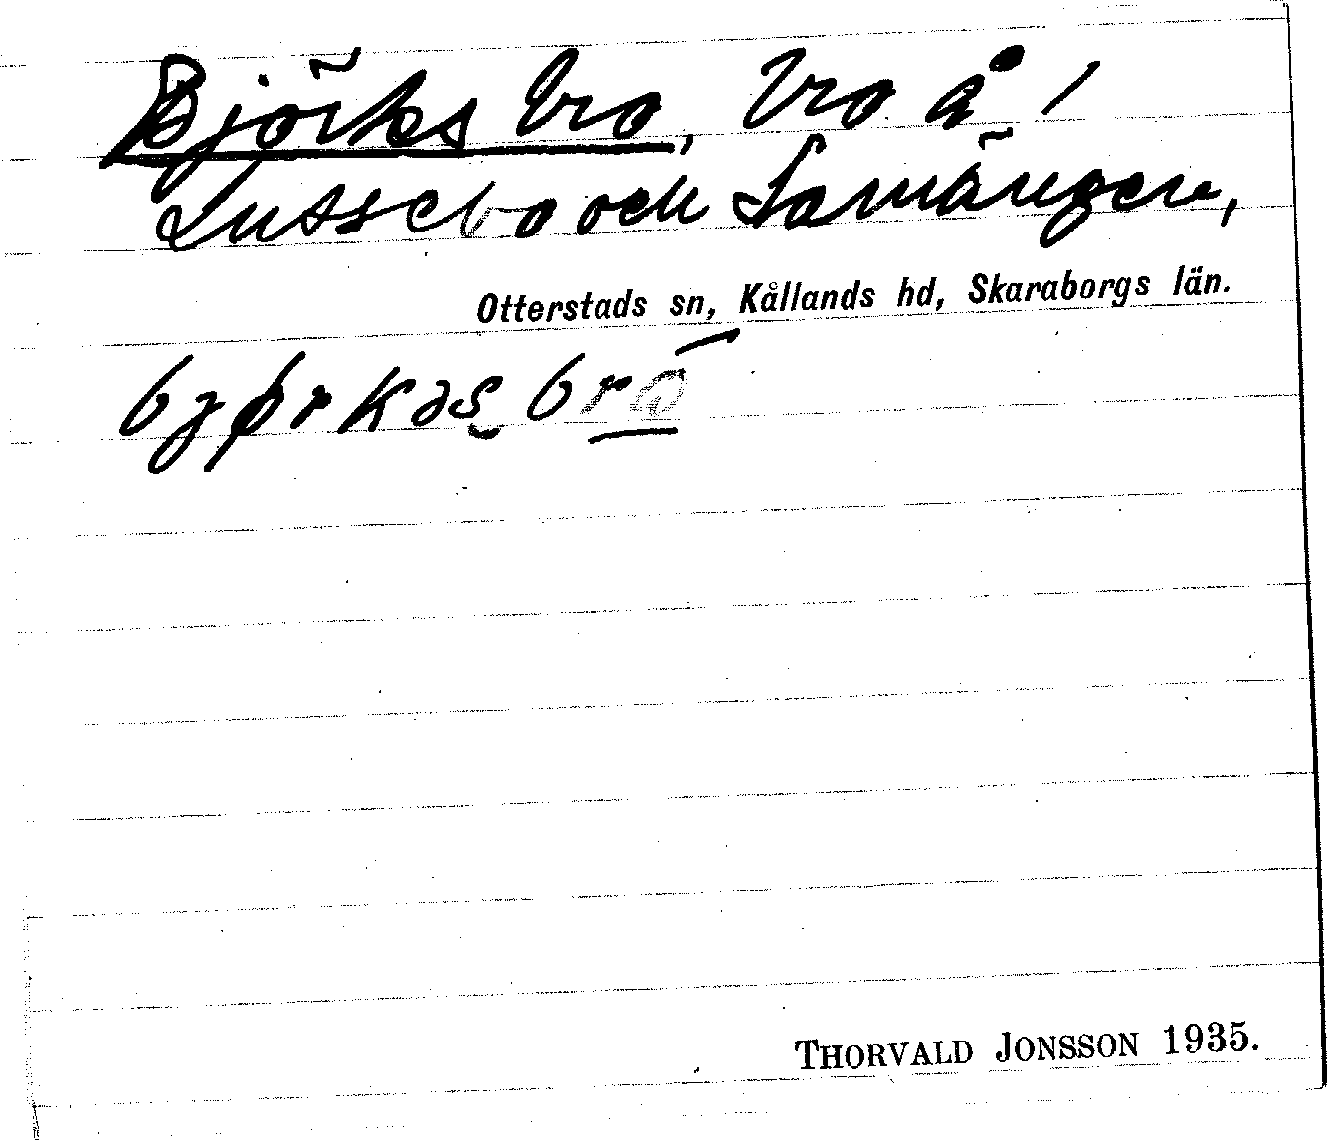 Björks bro, bro å 1
Lussebo och Lamängen,
Otterstads sn, Kållands hd, Skaraborgs län.
bjørkəs bro
THORVALD JONSSON 1935.